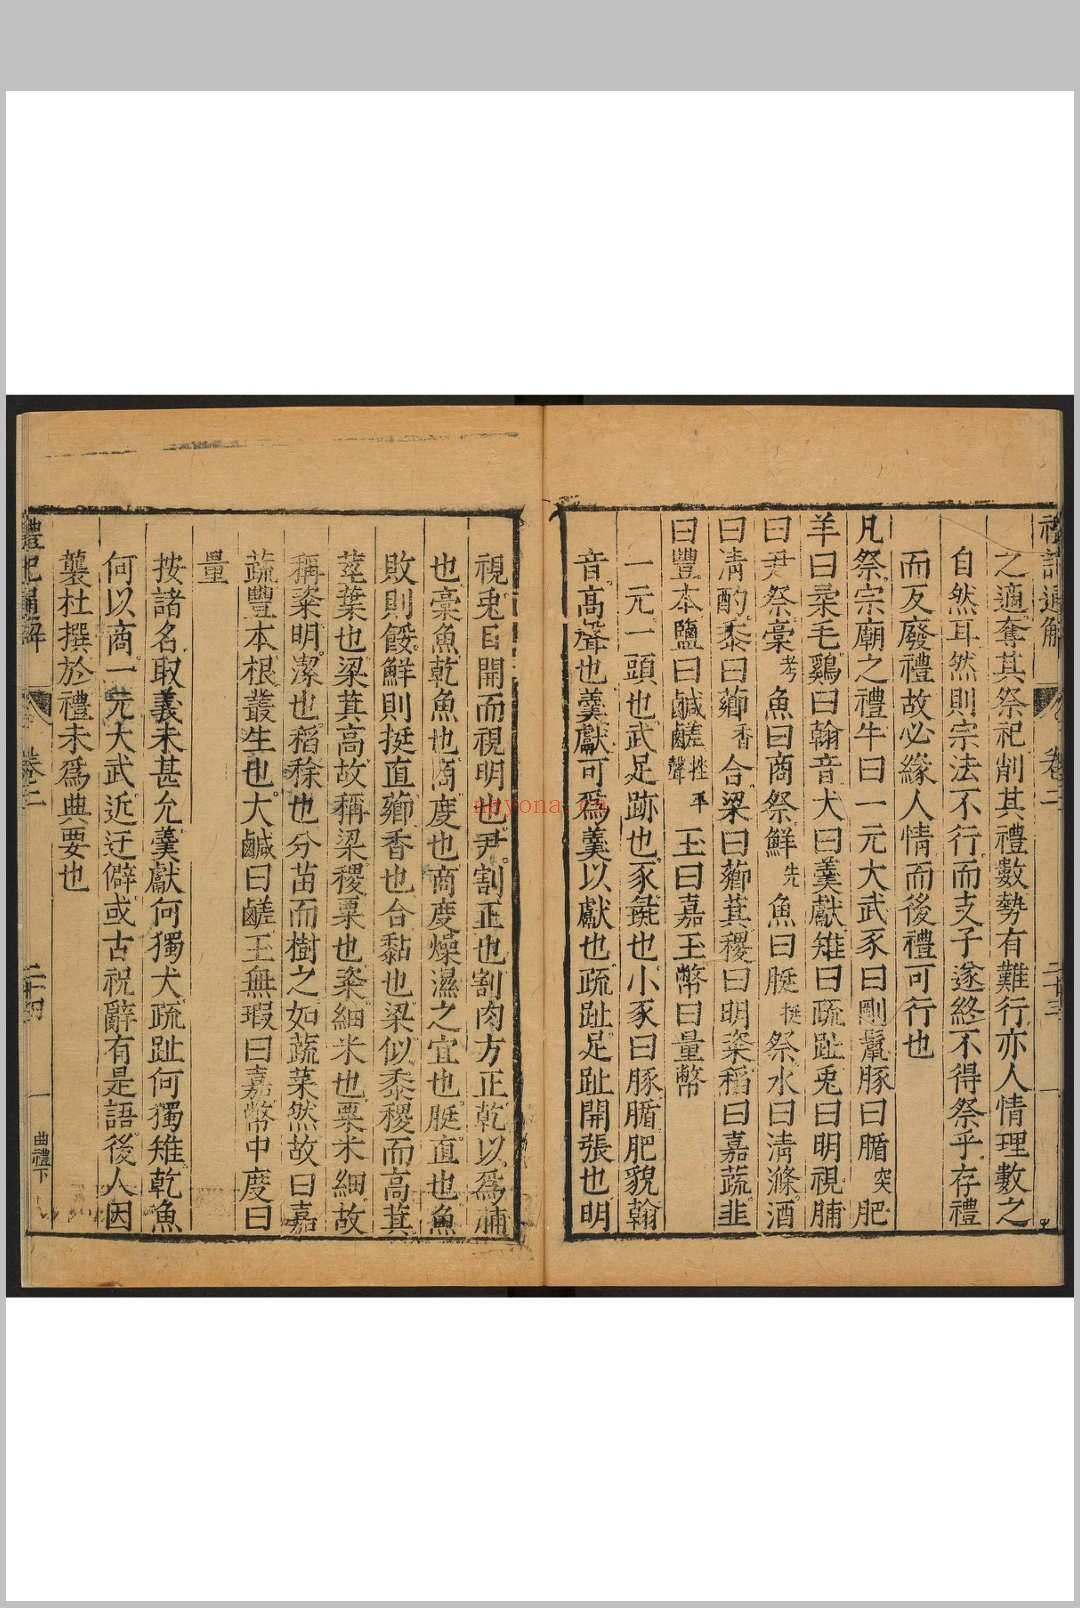 禮記通解
卷二
二十三
之適奪其祭祀削其禮數勢有難行亦人情理數之
自然耳然則宗法不行而支子遂終不得祭乎存禮
而反廢禮故必緣人情而後禮可行也
凡祭宗廟之禮牛曰一元大武豕曰剛鬣豚曰腯突肥
羊曰柔毛鷄曰翰音犬曰羹獻雉曰疏趾兎曰明視脯
曰尹祭槀考魚曰商祭鮮先魚曰脡挺祭水曰淸滌酒
曰淸酌黍曰薌香合梁曰薌萁稷曰明粢稻曰嘉蔬韭
曰豐本鹽曰鹹鹺挫平聲玉曰嘉玉幣曰量幣
一元一頭也武足跡也豕彘也小豕曰豚腯肥貌翰
音高聲也羹獻可爲羹以獻也疏趾足趾開張也明
視兎目開而視明也尹割正也割肉方正乾以爲脯
也槀魚乾魚也商度也商度燥濕之宜也脡直也魚
敗則餒鮮則挺直薌香也合黏也梁似黍稷而高萁
莖葉也梁萁高故稱梁稷粟也粢細米也粟米細故
稱粢明潔也稻稌也分苗而樹之如蔬菜然故曰嘉
蔬豐本根叢生也大鹹曰鹺玉無瑕曰嘉幣中度曰
量
按諸名取義未甚允羹獻何獨犬疏趾何獨雉乾魚
何以商一元大武近迂僻或古祝辭有是語後人因
襲杜撰於禮未爲典要也
禮記通解
卷二
二十四
曲禮下
nayona.cn